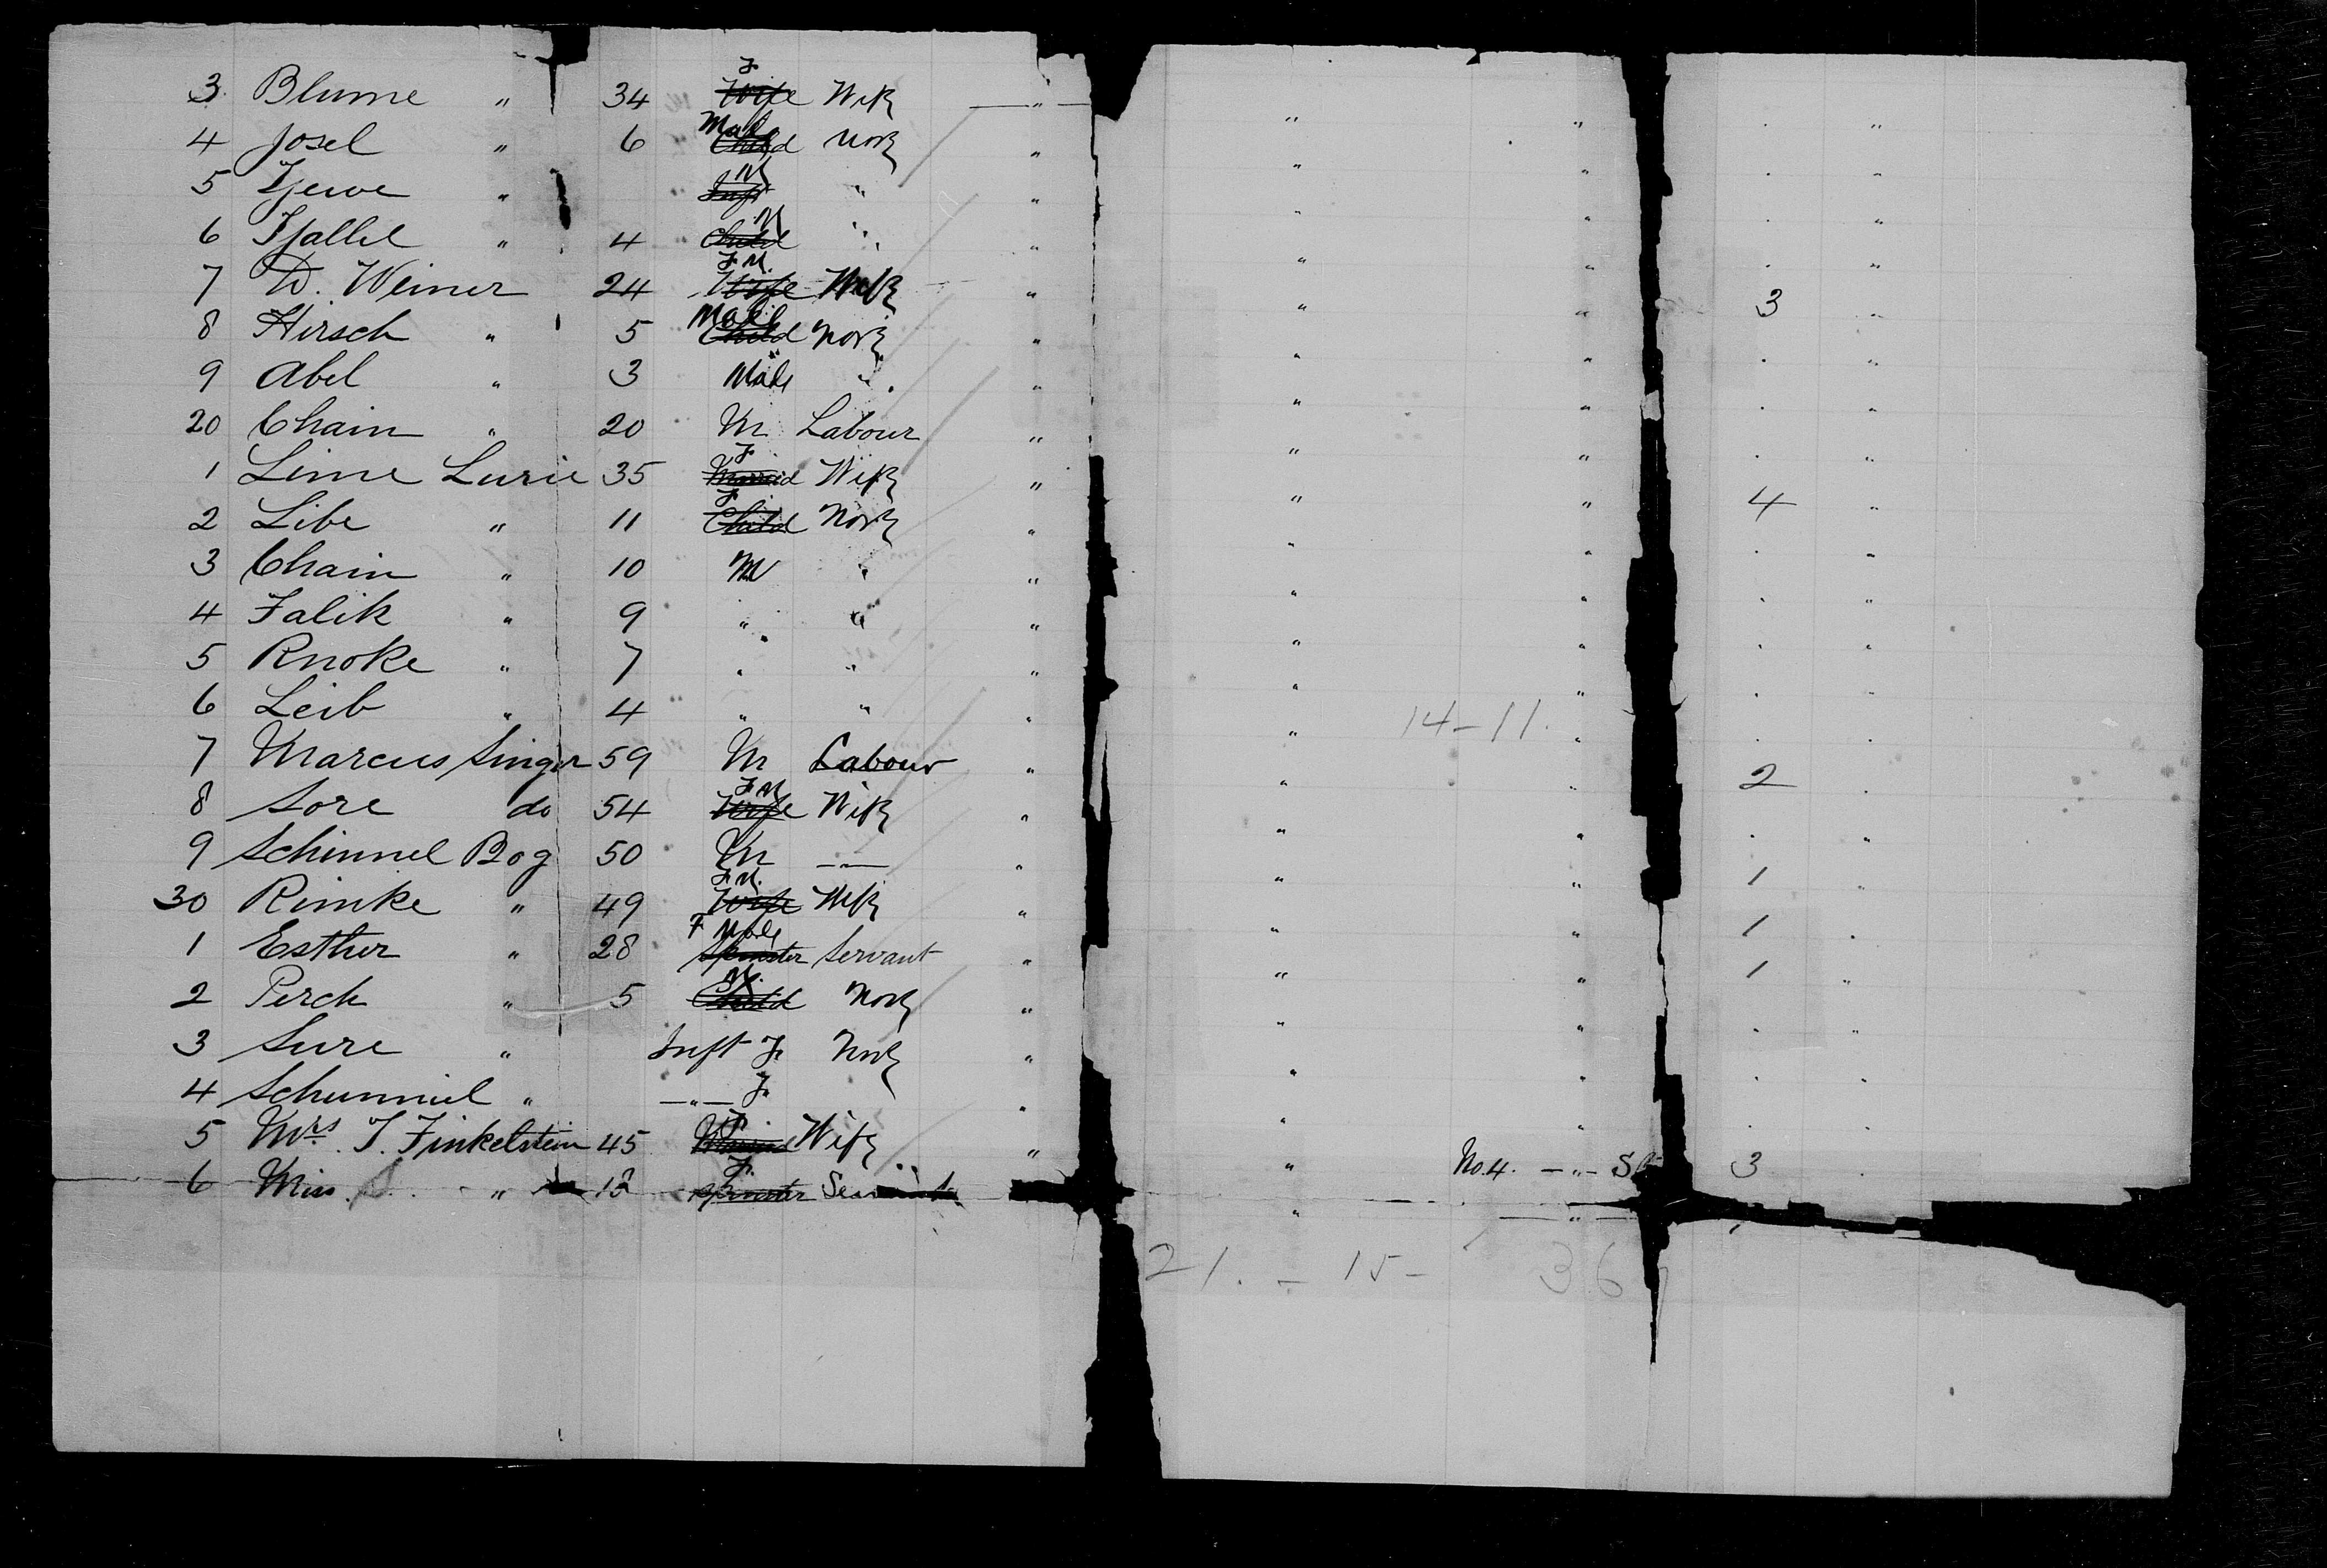 3 Blume " 34 F Wife Wife — " — " " . "
4 Josel " 6 Male Child None " " " . "
5 " M Inft " " " " . "
6 " 4 M Child " " " " . "
7 D. Weiner 24 F M. Wife Wife " " " 3 "
8 Hirsch " 5 Male Child None " " " . "
9 Abel " 3 Male " " " " . "
20 Chain " 20 M Labour " " " . "
1 Lime Lurie 35 F Married Wife " " " 4 "
2 Libe " 11 F Child None " " " . "
3 Chain " 10 M " " " " . "
4 Falik " 9 " " " " " . "
5 Rnoke " 7 " " " " " . "
6 Leib " 4 " " " " 14-11. " . "
7 Marcus Singer 59 M Labour " " " 2 "
8 Sore do 54 F M Wife Wife " " " . "
9 Schimmel Bog 50 M — " " " 1 "
30 Rimke " 49 F M. Wife Wife " " " 1 "
1 Esther " 28 F Male Spinster Servant " " " 1 "
2 Perch " 5 M Child None " " " . "
3 Sure " Inft F None " " " . "
4 Schummel " — " — F " " " . "
5 Mrs. J. Finkelstein 45 F Married Wife " " No. 4. — " — 3 "
6 Miss " 18 F. Spinster Servant " — " —
21. - 15 - 36